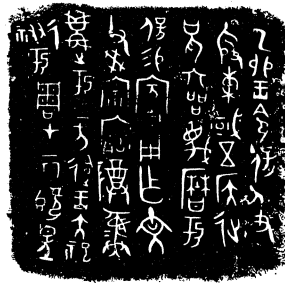 乙卯王令保及
殷東或五侯征
兄六品蔑曆于
保易賓用乍文
父癸宗寶尊彝
遘于四方會王大祀
祓于周才二月既望